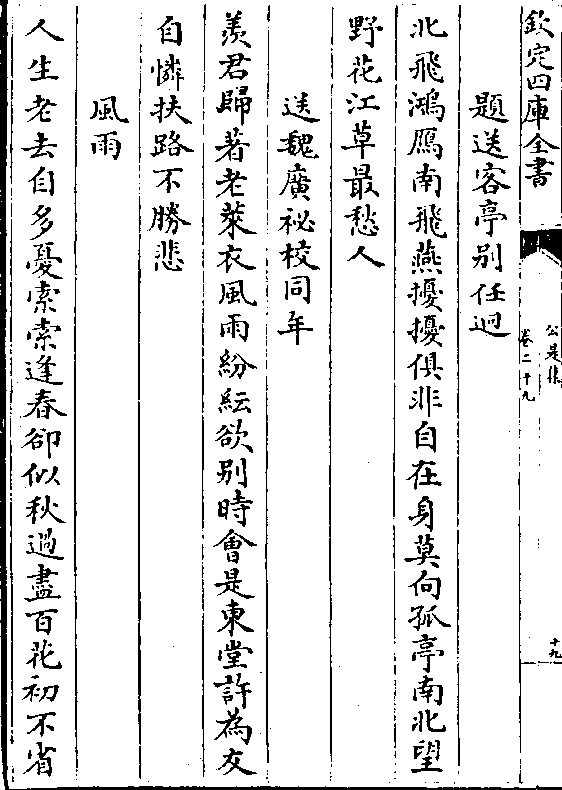 欽定四庫全書
公是集
卷二十九
十九
題送客亭别任迥
北飛鴻鴈南飛燕擾擾俱非自在身莫向孤亭南北望
野花江草最愁人
送魏廣祕校同年
羨君歸著老萊衣風雨紛紜欲别時會是東堂許為友
自憐扶路不勝悲
風雨
人生老去自多憂索索逢春卻似秋過盡百花初不省